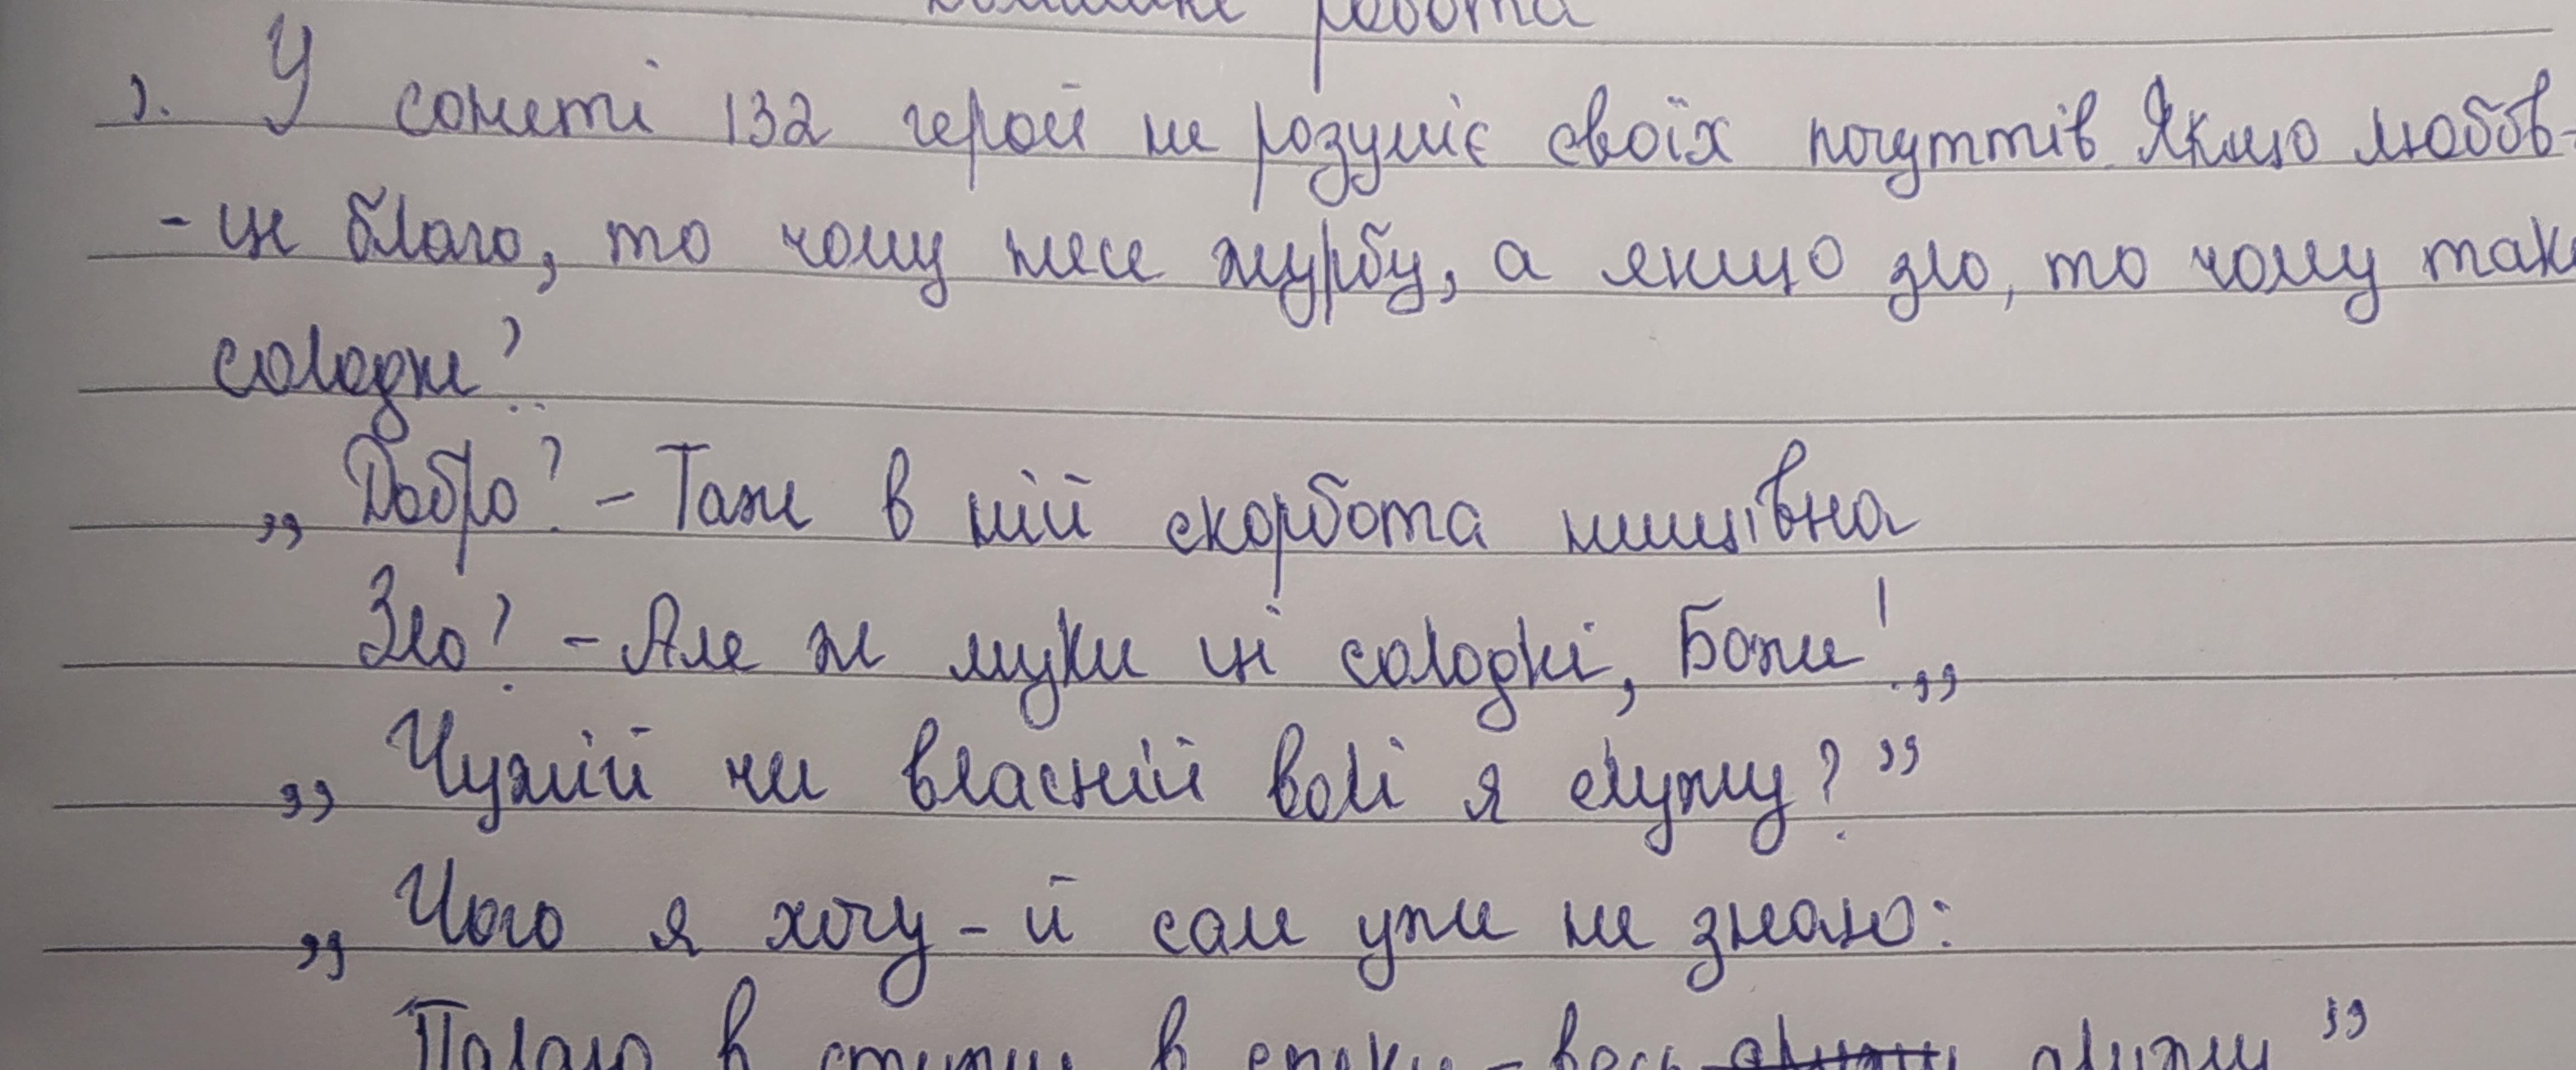 Домашнє робота
1. У сонеті 132 герой не розуміє своїх почуттів. Якщо любов-
- це благо, то чому несе журбу, а якщо зло, то чому таке
солодке?
„ Добро? - Таж в ній скорбота нищівна
Зло? - Але ж муки ці солодкі, Боже! „
„ Чужій чи власній волі я служу? ”
„ Чого я хочу - й сам уже не знаю:
Палаю в стужу, в спеку - весь дрижу ”